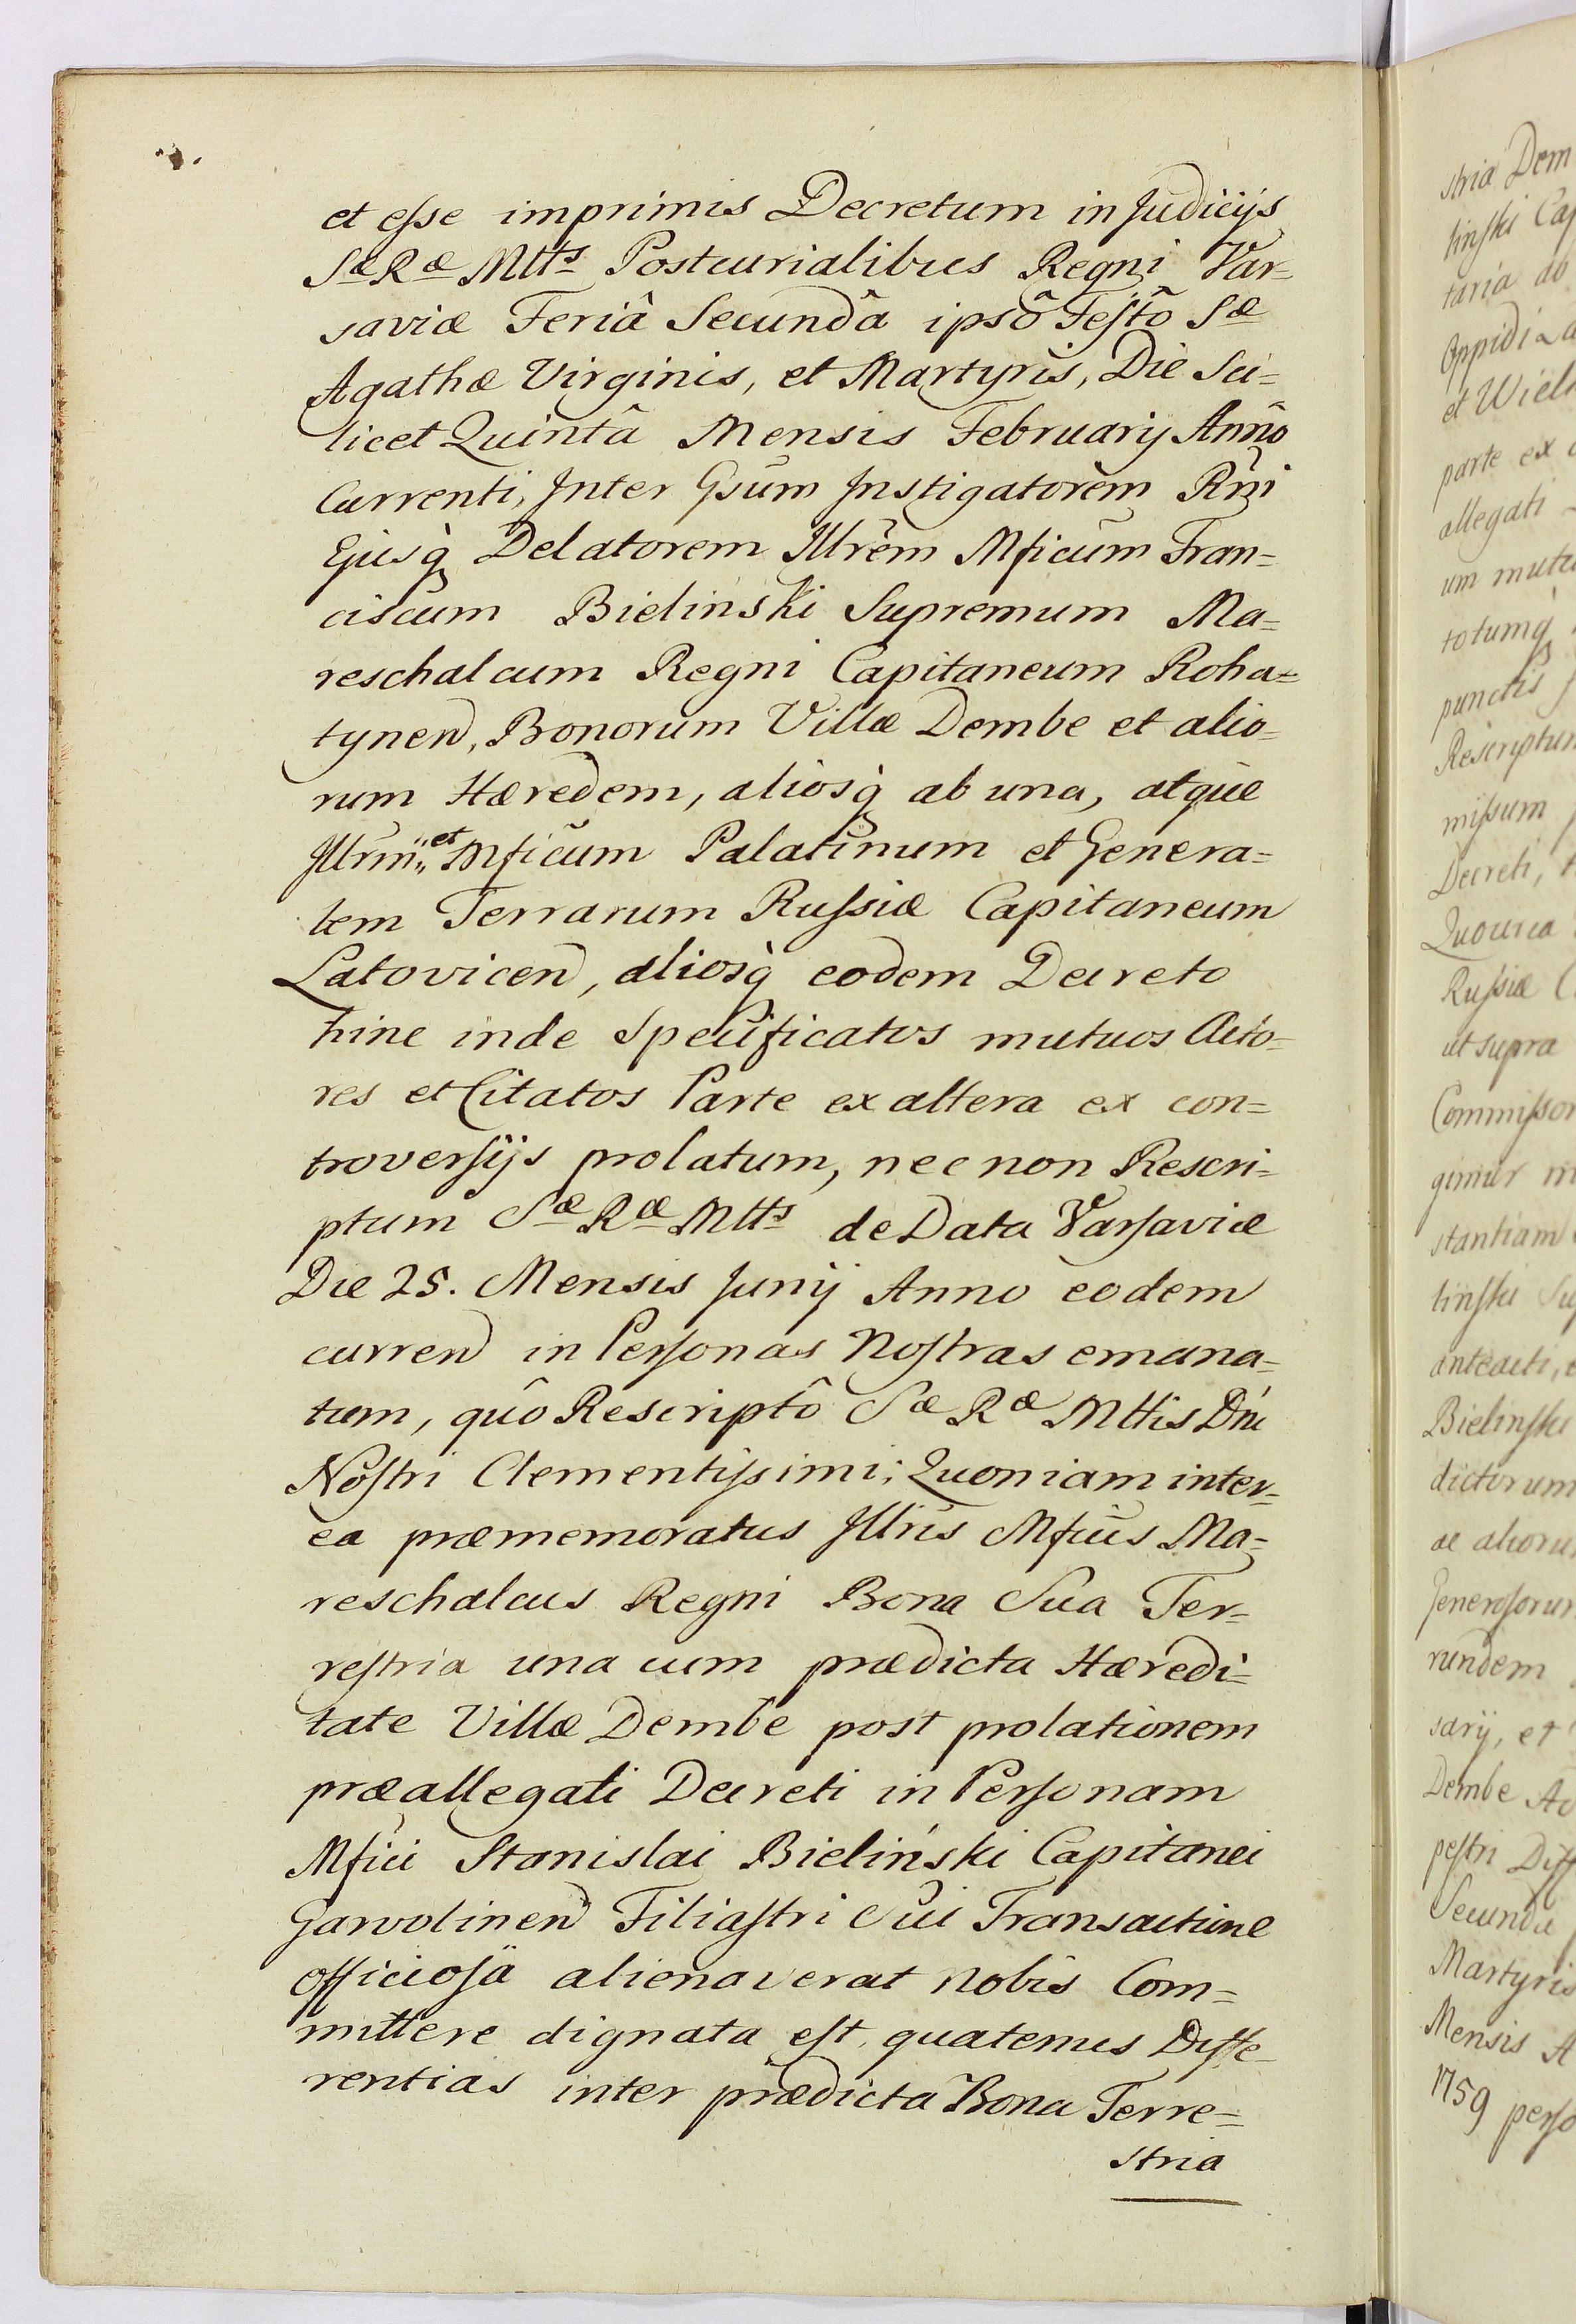 et eſse imprimis Decretum in Judicijs
Sæ Ræ Mttis Postcurialibus Regni Var=
saviæ Feriâ Secundâ ipsô Feſtô Sæ
Agathæ Virginis, et Martyris, Die Sci=
licet Quintâ Mensis Februarij Annô
Currenti, Inter Gsum Instigatorem Rni
Ejusq̀ Delatorem Illrem Mficum Fran=
ciscum Bielinski Supremum Ma=
reschalcum Regni Capitaneum Roha=
tynen, Bonorum Villæ Dembe et alio=
rum Hæredem, aliosq̀ ab una, atque
Illrm et Mficum Palatinum et Genera=
lem Terrarum Ruſsiæ Capitaneum
Latovicen, aliosq̀ eodem Decreto
hinc inde Specificatos mutuos Acto=
res et Citatos Parte ex altera ex con=
troverſijs prolatum, nec non Rescri=
ptum Sæ Ræ Mtts de Data Varſaviæ
Die 25. Mensis Junij Anno eodem
curren in Perſonas Noſtras emana=
tum, quô Rescriptô Sæ Ræ Mttis Dni
Noſtri Clementiſsimi; Quoniam inter=
ea præmemoratus Illris Mficus Ma=
reschalcus Regni Bona Sua Ter=
reſtria una cum prædicta Hæredi=
tate Villæ Dembe post prolationem
præallegati Decreti in Perſonam
Mfici Stanislai Bieliński Capitanei
Garvolinen Filiaſtri Sui Transactione
officioſa alienaverat nobis Com=
mittere dignata eſt, quatenus Diffe=
rentias inter prædicta Bona Terre=
stria
stria Dem
linſki Cap
taria ab
Oppidi La
et Wiel
parte ex
allegati
um mutu
totumq̀
punctis
Rescriptum
miſsum
Decreti,
Quocirca
Ruſsiæ C
ut supra
Commiſsor
gimur in
stantiam
linſki Sup
anteacti,
Bielinſki
dictorum
ac alioru
Generoſorum
rundem
sarij, et
Dembe Ac
peſtri Diff
Secunda
Martyris
Mensis A
1759 perſo